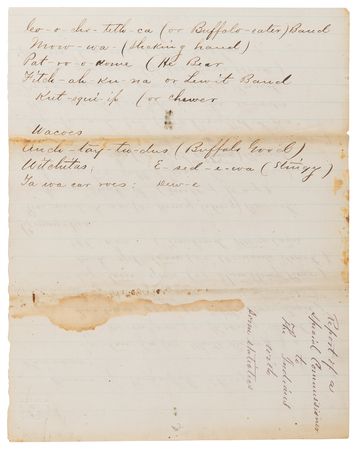 Co-o-chr-teth-ca (or Buffalo-eater) Band
Mow-wa-(Shaking hand)
Pat-ro-o-kome (He Bear
Titch-ah-ku-na or Lewit Band
Kut-squi-ip (or chewer
Wacoes
Auch-tay-tu-dus (Buffalo Good)
Witchitas, E-sid-e-wa (Stingy)
Ta wa car roes: Dew-e
Report of a
Special Commissioner
to
The Indians
with
some statistics